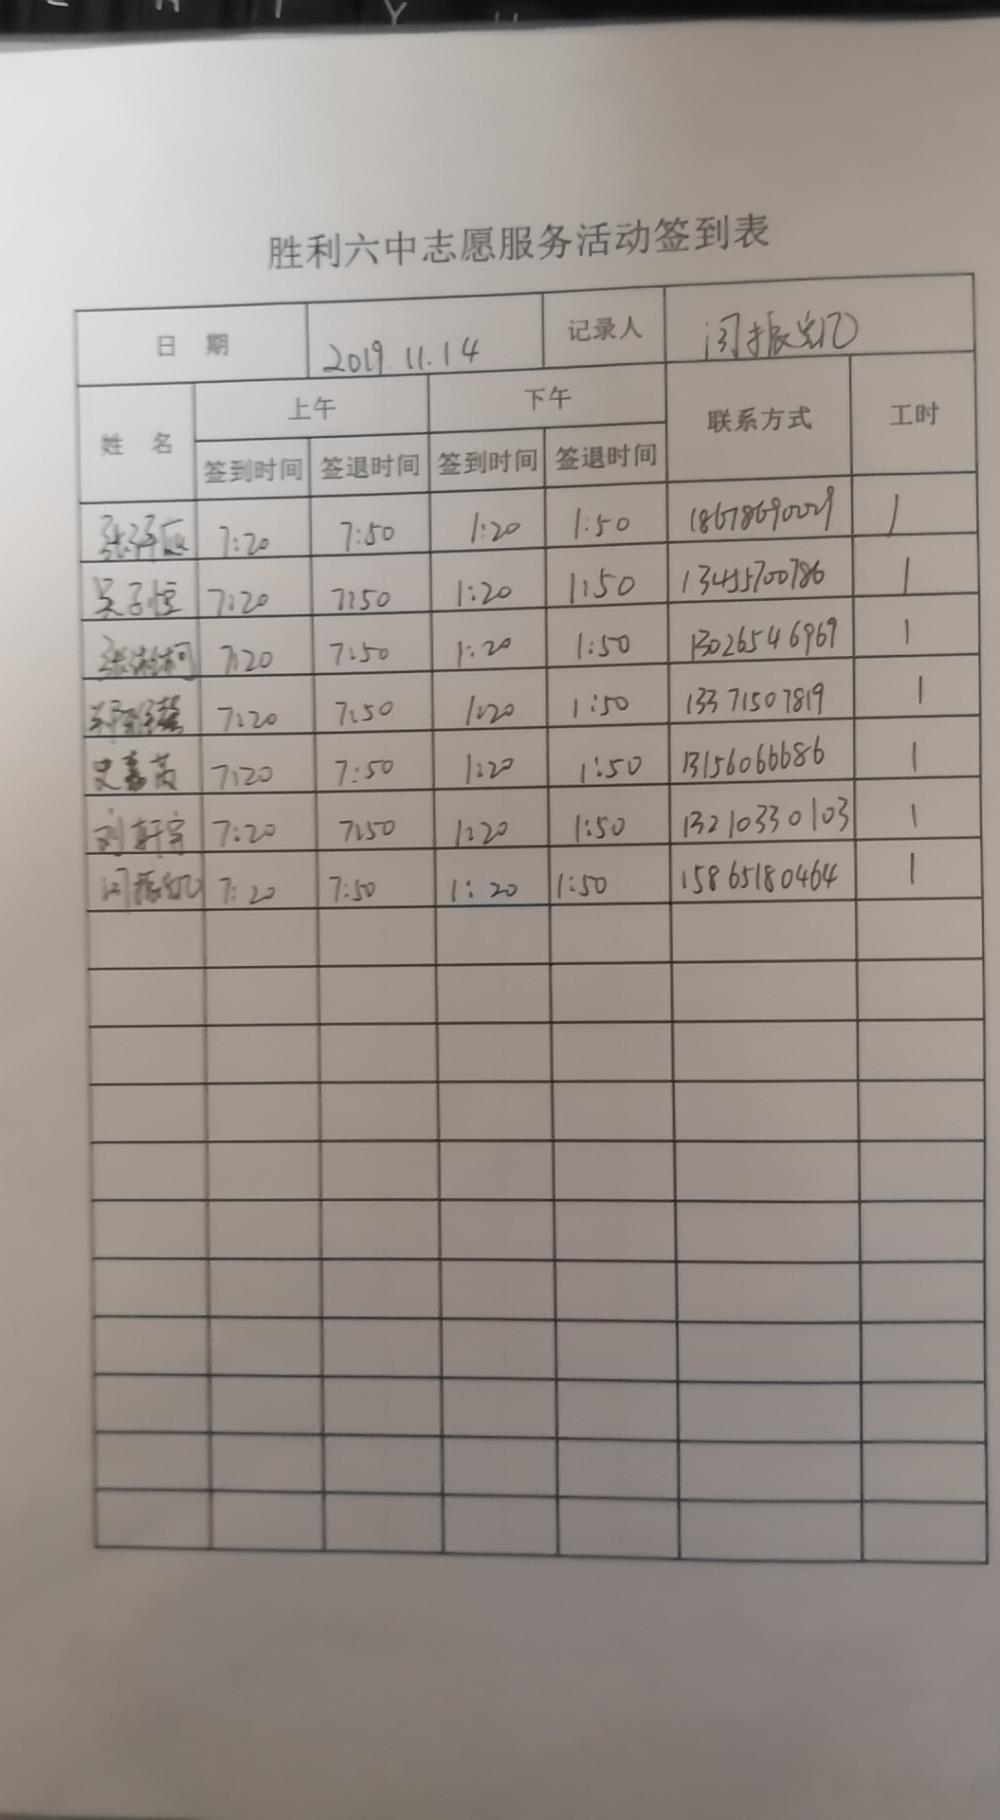 胜利六中志愿服务活动签到表
日 期 2019.11.14 记录人 闫振凯
姓 名 上午 下午 联系方式 工时
签到时间 签退时间 签到时间 签退时间
7:20 7:50 1:20 1:50 18678690029 1
吴子恒 7:20 7:50 1:20 1:50 13455700786 1
7:20 7:50 1:20 1:50 13026546969 1
7:20 7:50 1:20 1:50 13371507819 1
史嘉 7:20 7:50 1:20 1:50 13156066686 1
刘轩宇 7:20 7:50 1:20 1:50 13210330103 1
闫振凯 7:20 7:50 1:20 1:50 15865180464 1